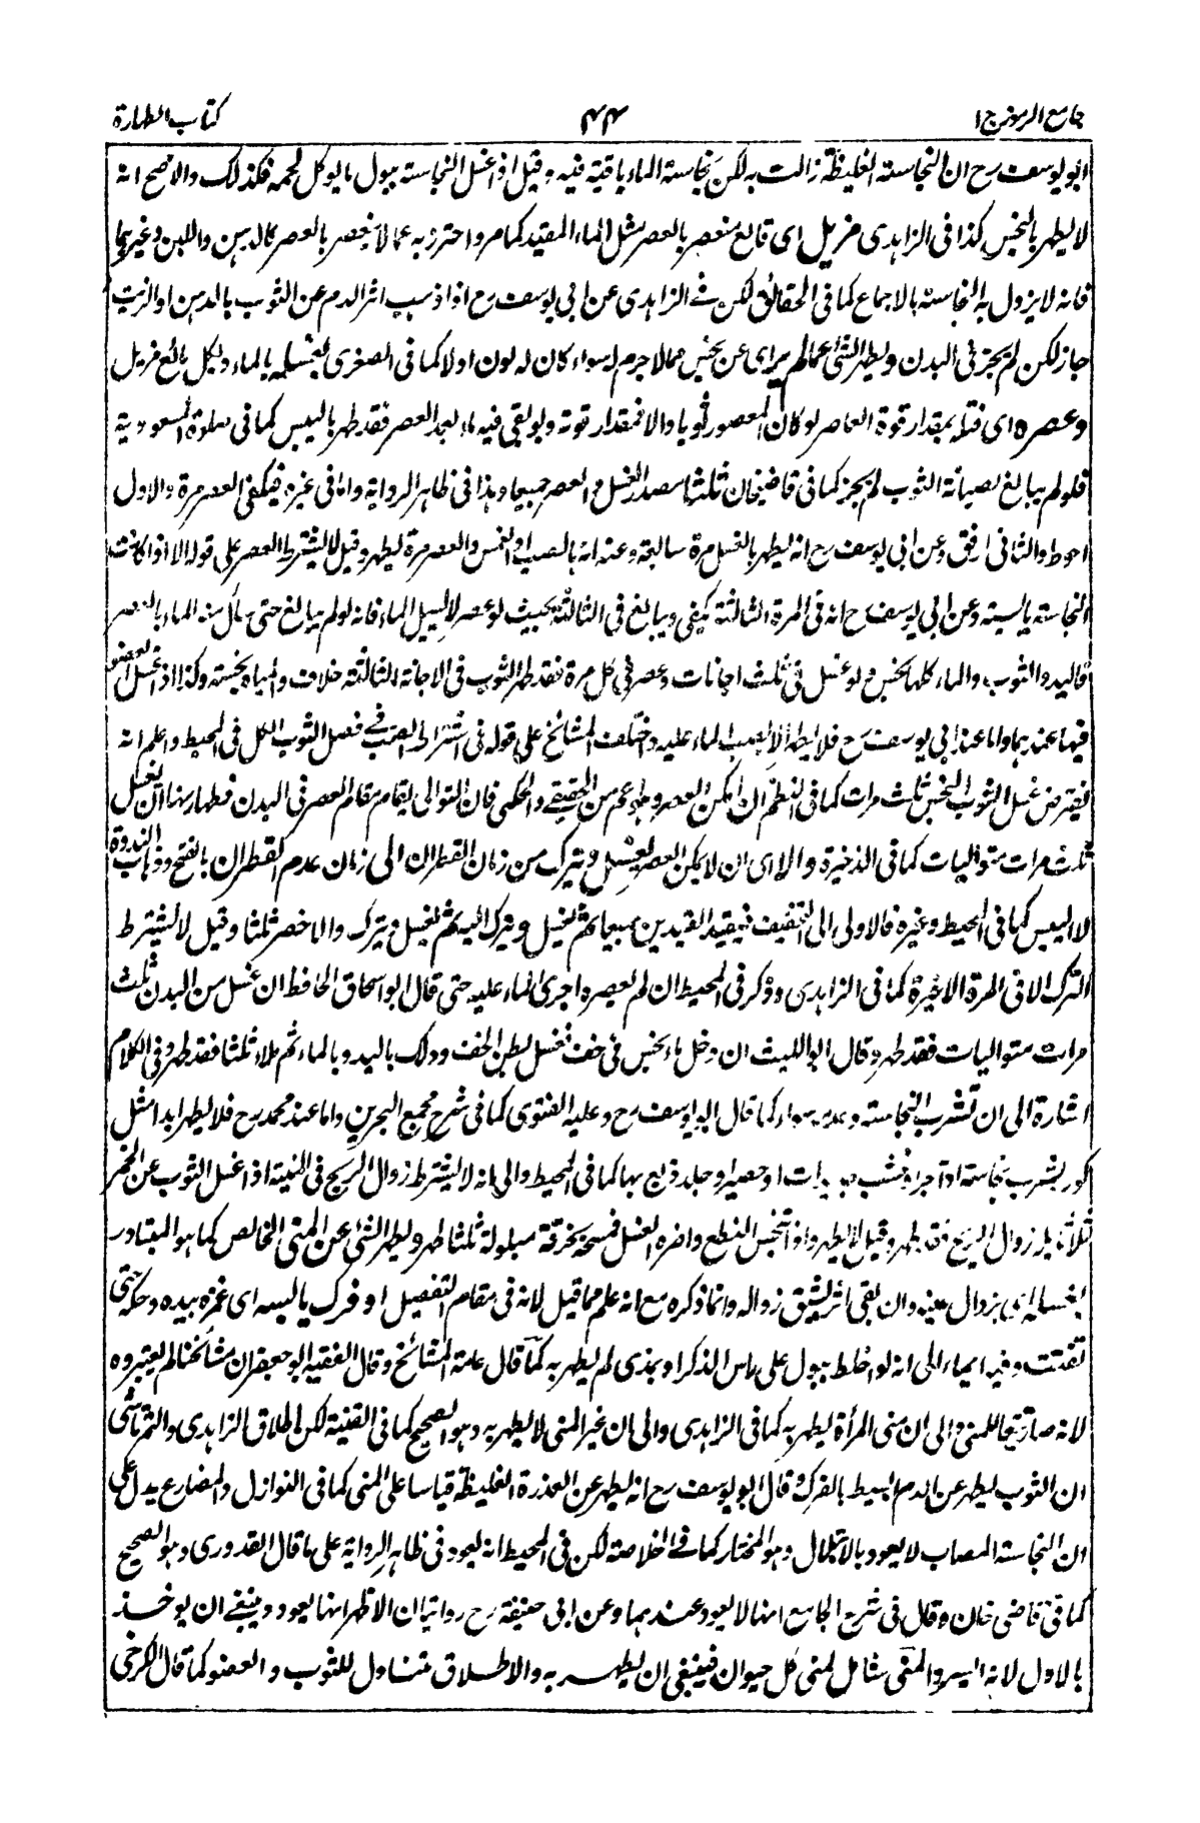 جامع الرموز ج ۱ ۴۴ كتاب الطهارة
ابو يوسف رح ان النجاسة الغليظة زالت به لكن نجاسة الماء باقية فيه وقيل اذا غسل النجاسة ببول ما يوكل لحمه فكذلك والاصح انه
لا يطهر بالنجس كذا فى الزاهدى مزيل اى قالع منعصر بالعصر مثل الماء المقيد كما مر واحترز به عما لا ينعصر بالعصر كالدهن واللبن وغيرهما
فانه لا يزول به النجاسة بالاجماع كما فى الحقائق لكن فى الزاهدى عن ابى يوسف رح اذا ذهب اثر الدم عن الثوب بالدهن او الزيت
جاز لكن لم يجز فى البدن ويطهر الشئ عما لم ير اى عن نجس مما لا جرم له سواء كان له لون اولا كما فى الصغرى بغسله بالماء وبكل مائع مزيل
وعصره اى فتله بمقدار قوة العاصر لو كان المعصور قويا والا فمقدار قوته ولو بقى فيه ماء بعد العصر فقد طهر باليبس كما فى صلوة المسعودية
فلو لم يبالغ لصيانة الثوب لم يجز كما فى قاضيخان ثلثا مصدر الغسل والعصر جميعا وهذا فى ظاهر الرواية واما فى غيره فيكفى العصر مرة والاول
احوط والثانى ارفق وعن ابى يوسف رح انه يطهر بالغسل مرة سابغة وعنه انه بالصب او الغمس والعصر مرة يطهر وقيل لا يشترط العصر على قوله الا اذا كانت
النجاسة يابسة وعن ابى يوسف رح انه فى المرة الثالثة يكفى ويبالغ فى الثالثة بحيث لو عصر لا يسيل الماء فانه لو لم يبالغ حتى سال منه الماء بالعصر
فاليد والثوب والماء كلها نجس ولو غسل فى ثلث اجانات وعصر فى كل مرة فقد طهر الثوب فى الاجانة الثالثة خلافه والمياه نجسة وكذا اذا غسل العضو
فيها عندهما واما عند ابى يوسف رح فلا يطهر الا بصب الماء عليه واختلف المشائخ على قوله فى اشتراط الصب فى فصل الثوب الكل فى المحيط واعلم انه
يفترض غسل الثوب النجس ثلث مرات كما فى النظم ان امكن العصر وهو اعم من الحقيقى والحكمى فان التوالى يقام مقام العصر فى البدن فطهارتها ان يغسل
ثلث مرات متواليات كما فى الذخيرة والا اى ان لا يمكن العصر يغسل ويترك من زمان القطران الى زمان عدم القطران بالفتح وذهاب الندوة
لا اليبس كما فى المحيط وغيره فالاولى الى التجفيف فيقيد القيدين جميعا ثم يغسل ويترك اليه ثم يغسل ويترك والاخصر ثلثا وقيل لا يشترط
الترك الا فى المرة الاخيرة كما فى الزاهدى وذكر فى المحيط ان لم يعصره اجرى الماء عليه حتى قال ابو اسحاق الحافظ ان غسل من البدن ثلث
مرات متواليات فقد طهر وقال ابو الليث ان دخل ماء نجس فى خف فغسل بطن الخف ودلك باليد وبالماء ثم ملاء ثلثا فقد طهر وفى الكلام
اشارة الى ان تشرب النجاسة وعدمه سواء كما قال ابو يوسف رح وعليه الفتوى كما فى شرح مجمع البحرين واما عند محمد رح فلا يطهر ابدا مثل
كوز يشرب نجاسة او آجر او خشب جديدات او حصير او جلد دبغ بها كما فى المحيط والى انه لا يشترط زوال الريح فى المنية اذا غسل الثوب عن الخمر
ثلاثا بلا زوال الريح فقد طهر وقيل لا يطهر واذا تنجس النطع واضره الغسل فمسحه بخرقة مبلولة ثلثا طهر ويطهر الشئ عن المنى الخالص كما هو المتبادر
بغسله اى بزوال عينه وان بقى اثر يشق زواله وانما ذكره مع انه علم مما قبل لانه فى مقام التفصيل او فرك يابسه اى غمزه بيده وحكه حتى
تفتت وفيه ايماء الى انه لو اختلط ببول على راس الذكر او بمذى لم يطهر به كما قال عامة المشائخ وقال الفقيه ابو جعفر ان مشائخنا لم يعتبروه
لانه صار تبعا للمنى والى ان منى المرأة يطهر به كما فى الزاهدى والى ان غير المنى لا يطهر به وهو الصحيح كما فى القنية لكن اطلاق الزاهدى والتمرتاشى
ان الثوب يطهر عن الدم البسيط بالفرك وقال ابو يوسف رح انه يطهر عن العذرة الغليظة قياسا على المنى كما فى النوازل والمضارع يدل على
ان النجاسة المصاب لا يعود بالابتلال وهو المختار كما فى الخلاصة لكن فى المحيط انه يعود فى ظاهر الرواية على ما قال القدورى وهو الصحيح
كما فى قاضى خان وقال فى شرح الجامع انها لا يعود عندهما وعن ابى حنيفة رح روايتان الاظهر انها يعود وينبغى ان يوخذ
بالاول لانه ايسر والمنى شامل لمنى كل حيوان فينبغى ان يطهر به والاطلاق متناول للثوب والعضو كما قال الكرخى